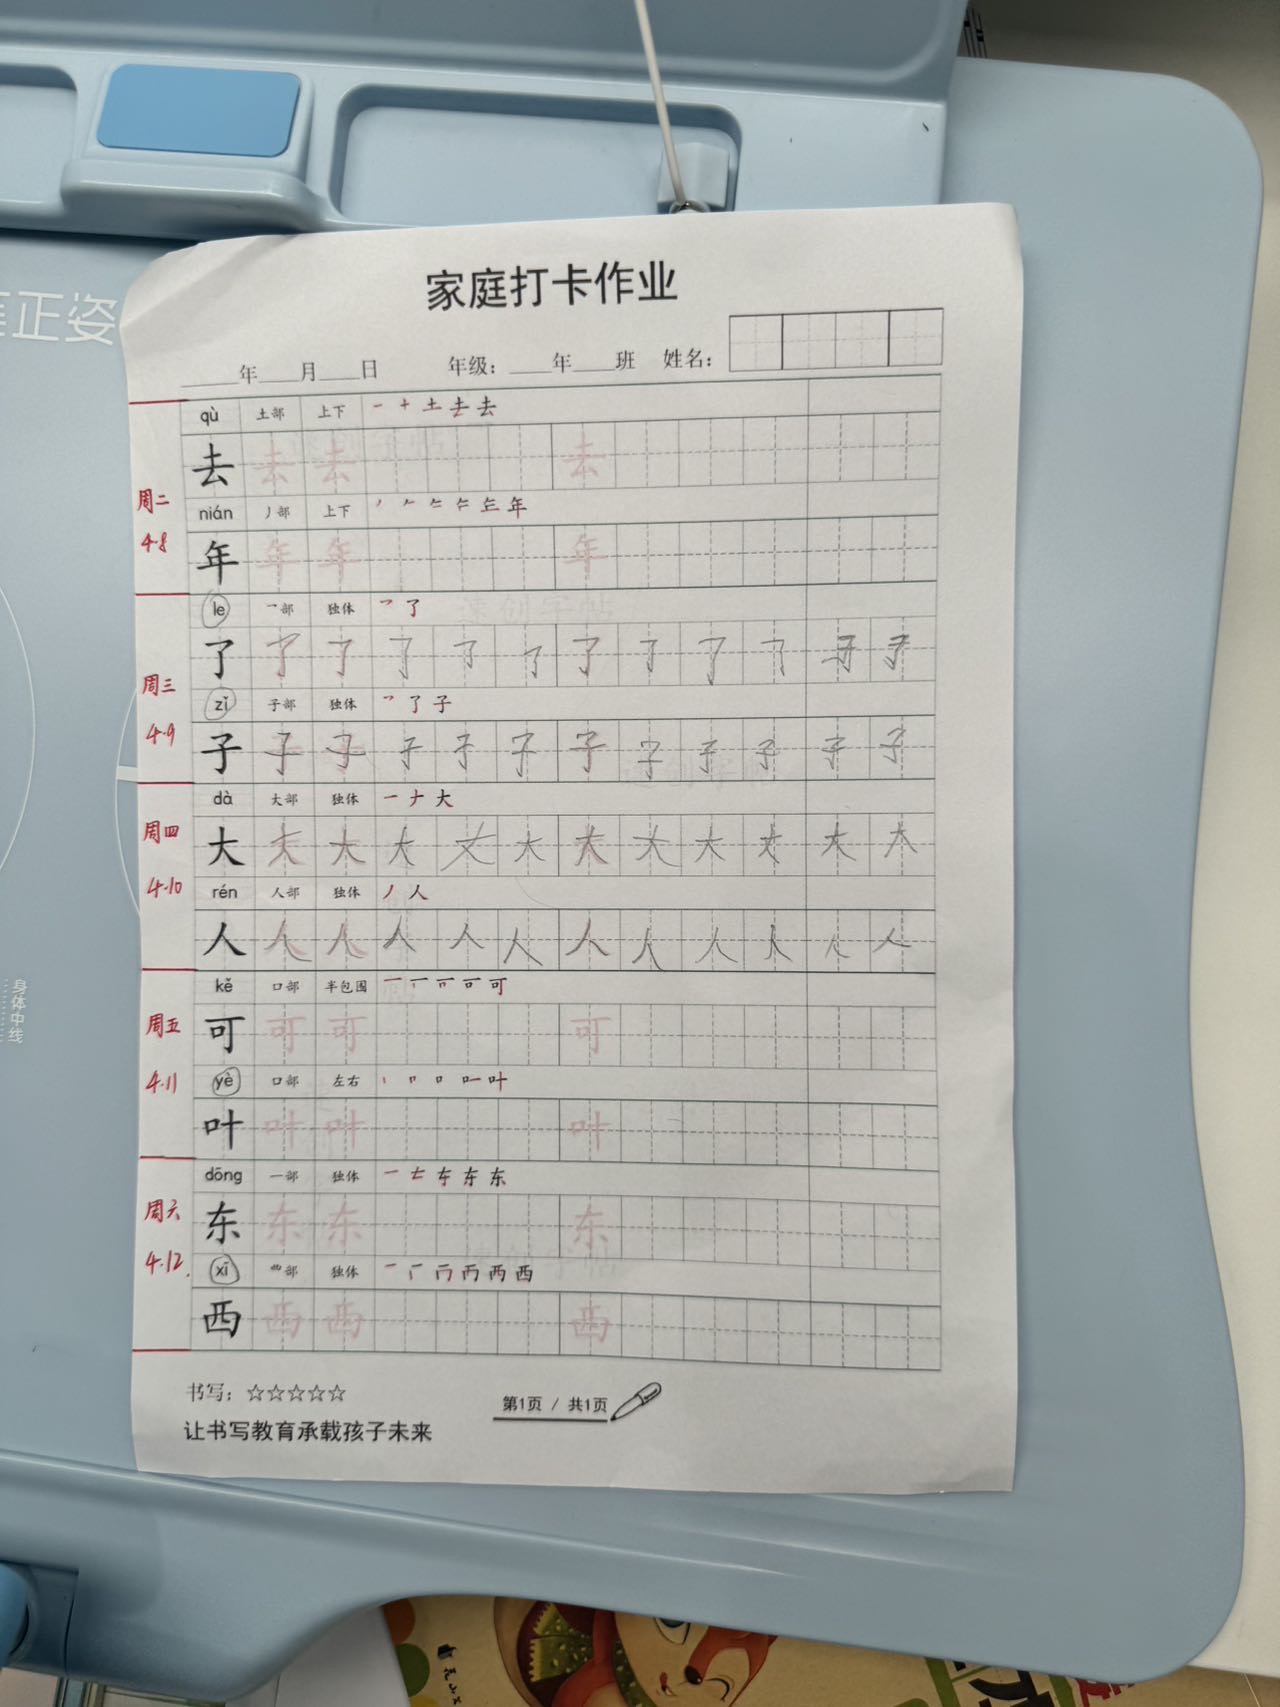 正姿
家庭打卡作业
____年____月____日 年级：____年____班 姓名：
周二
4.8
qù 土部 上下 一 十 土 去 去
去 去 去 去
nián 丿部 上下 年
年 年 年 年
周三
4.9
le 乛部 独体 乛 了
了 了 了 了 了 了 了 了 了 了 子 子
zǐ 子部 独体 乛 了 子
子 子 子 子 子 子 子 子 子 子 子 子
周四
4.10
dà 大部 独体 一 ナ 大
大 大 大 大 大 大 大 大 大 大 大 大
rén 人部 独体 丿 人
人 人 人 人 人 人 人 人 人 人 人 人
周五
4.11
kě 口部 半包围 一 可
可 可 可 可
yè 口部 左右 丨 口 叶
叶 叶 叶 叶
周六
4.12.
dōng 一部 独体 一 东 东
东 东 东 东
xī 覀部 独体 一 西
西 西 西 西
书写：☆☆☆☆☆
第1页 / 共1页
让书写教育承载孩子未来
身体中线
速创字帖